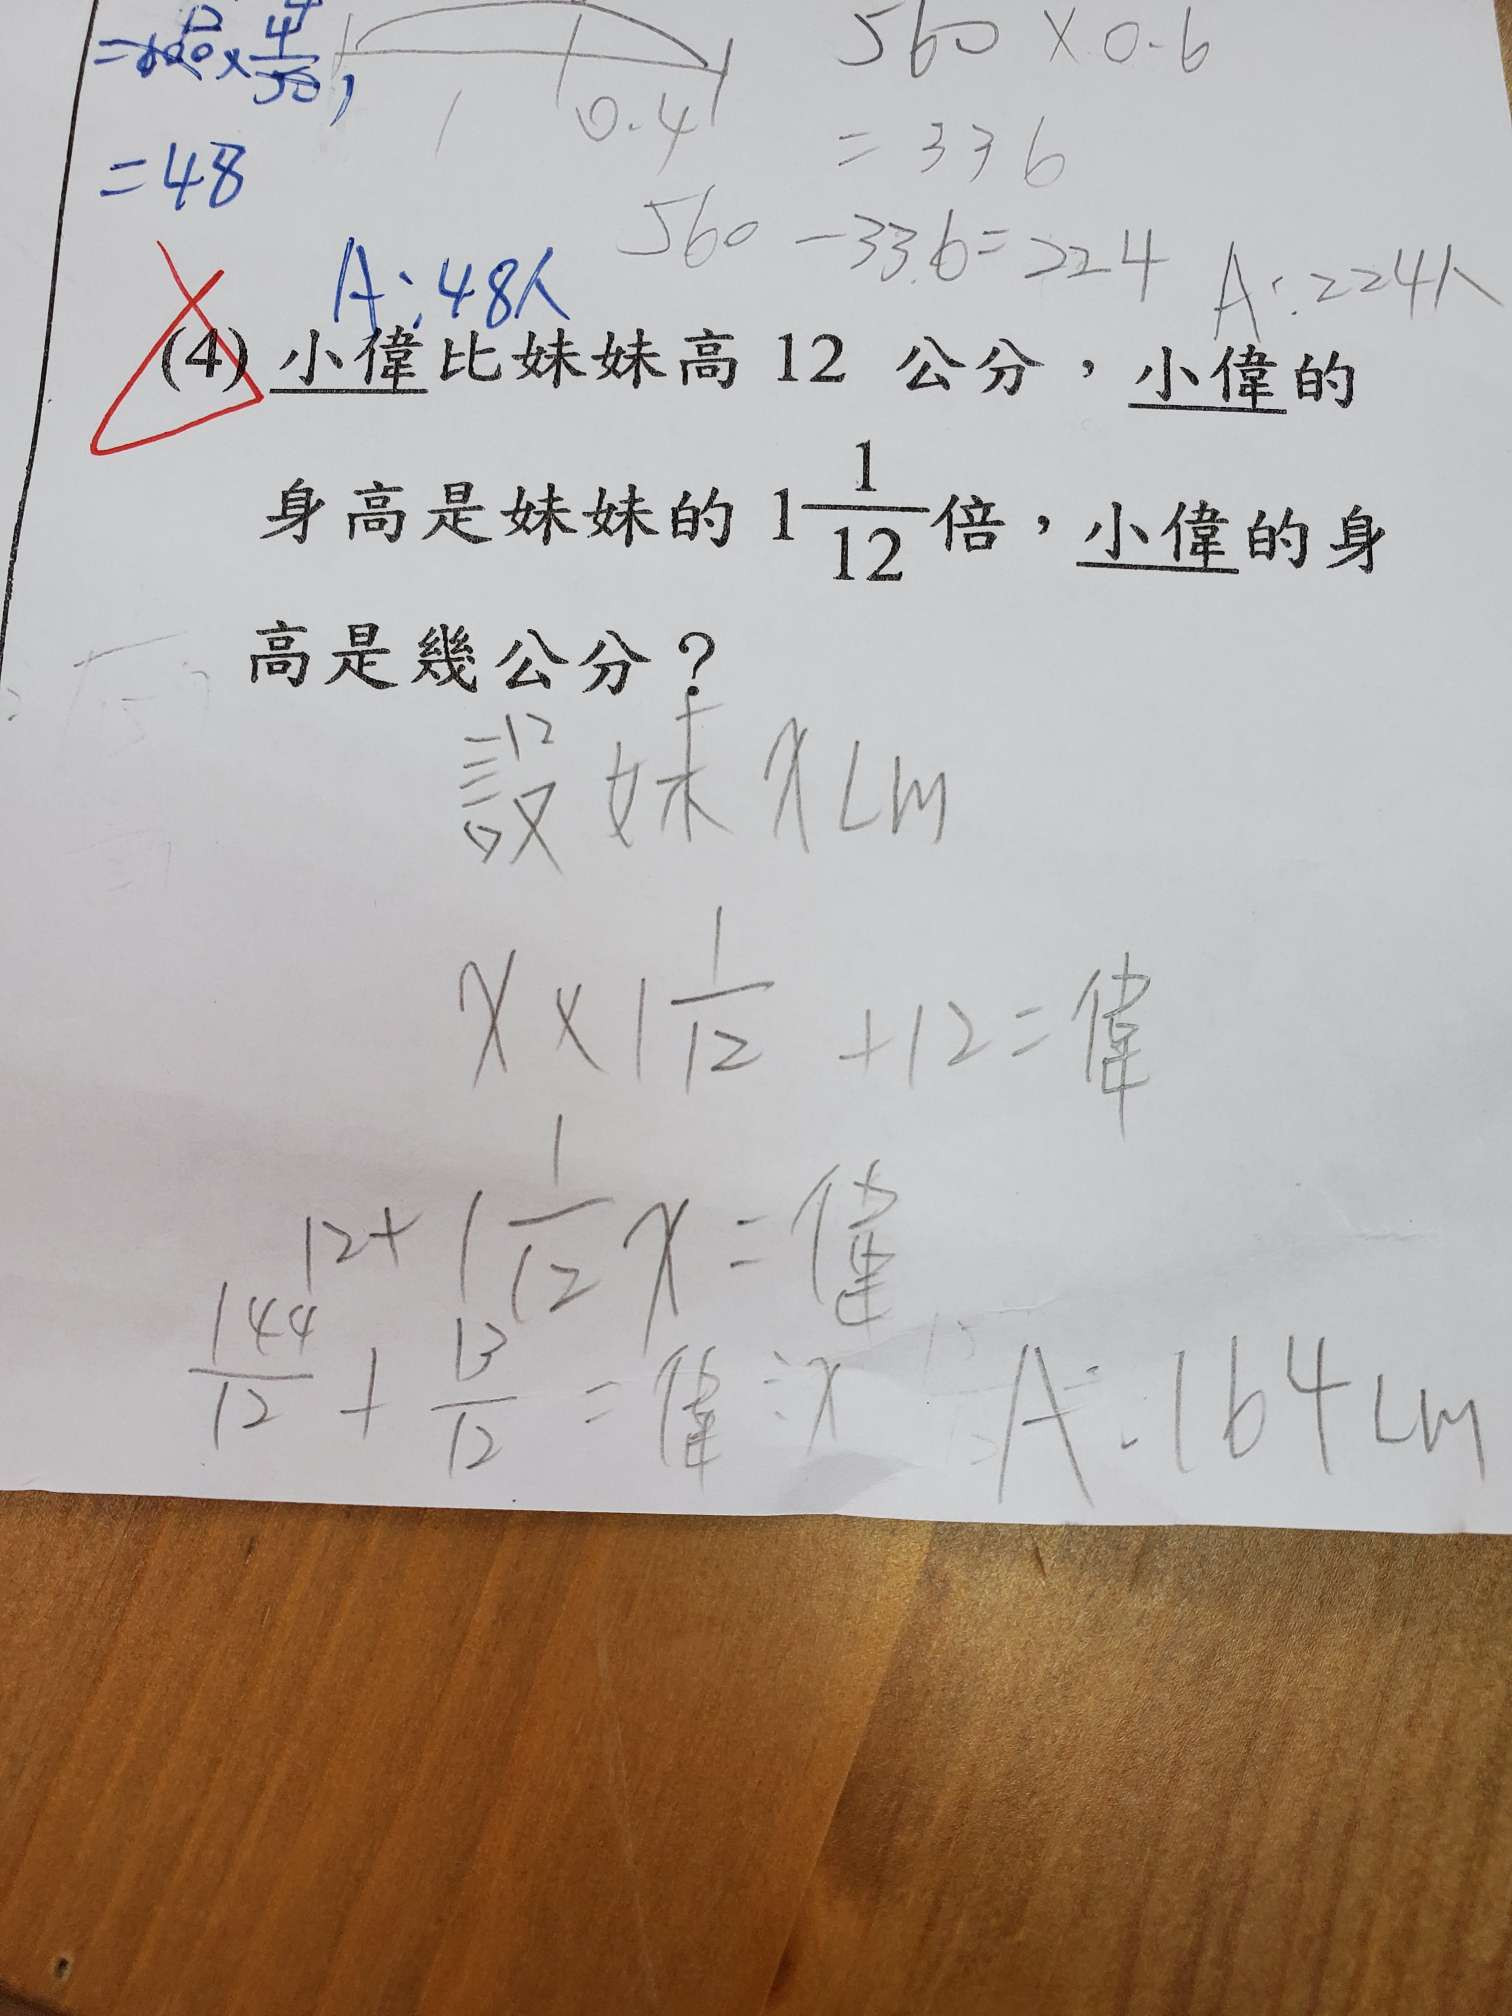 560 × 0.6
1 0.4
= 336
= 48
560 - 336 = 224
A: 224人
A: 48人
(4) 小偉比妹妹高 12 公分，小偉的
身高是妹妹的 1 1/12 倍，小偉的身
高是幾公分？
設妹 x cm
x × 1 1/12 + 12 = 偉
12 + 1 1/12 x = 偉
144/12 + 13/12 = 偉 ÷ x
A: 164 cm